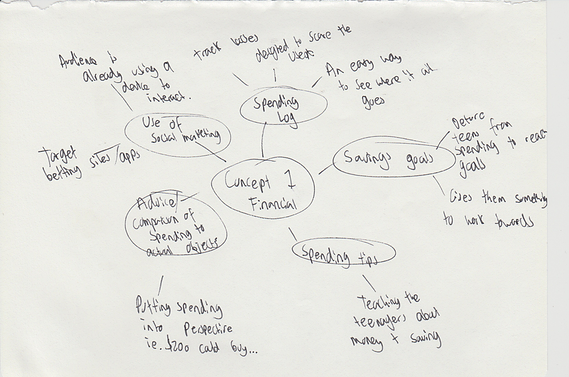 Audience is
already using a
device to
interact.
track losses
designed to scare the
users
An easy way
to see where it all
goes
Spending
Log
Use of
Social marketing
Target
betting sites/apps
Savings goals
Deture
teens from
spending to reach
goals
Gives them something
to work towards
Concept 1
Financial
Advice/
comparison of
spending to
actual objects
Putting spending
into Perspective
ie. $200 could buy...
Spending tips
Teaching the
teenagers about
money + saving